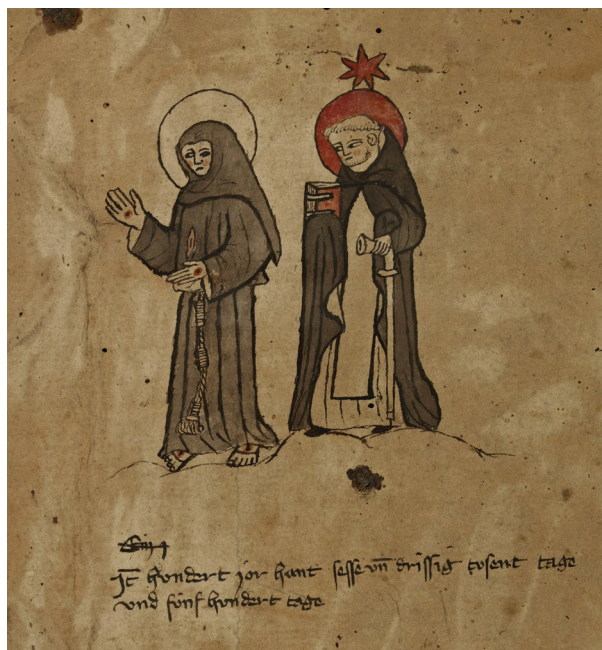 Jtē hvndert jor hant sesse vn̄ drissig tosent tage
vnd fúnf hvndert tage